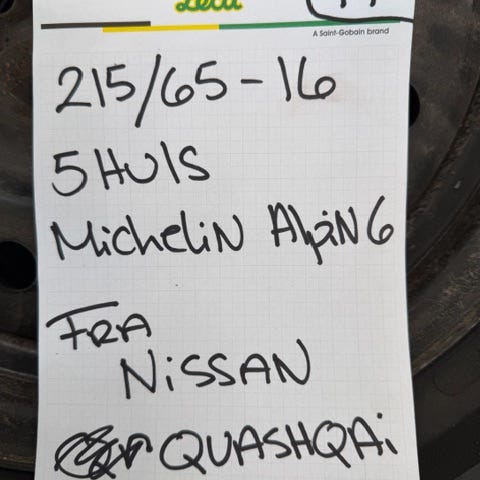 Leca
A Saint-Gobain brand
215/65-16
5 HULS
Michelin Alpin 6
FRA
NISSAN
QUASHQAi